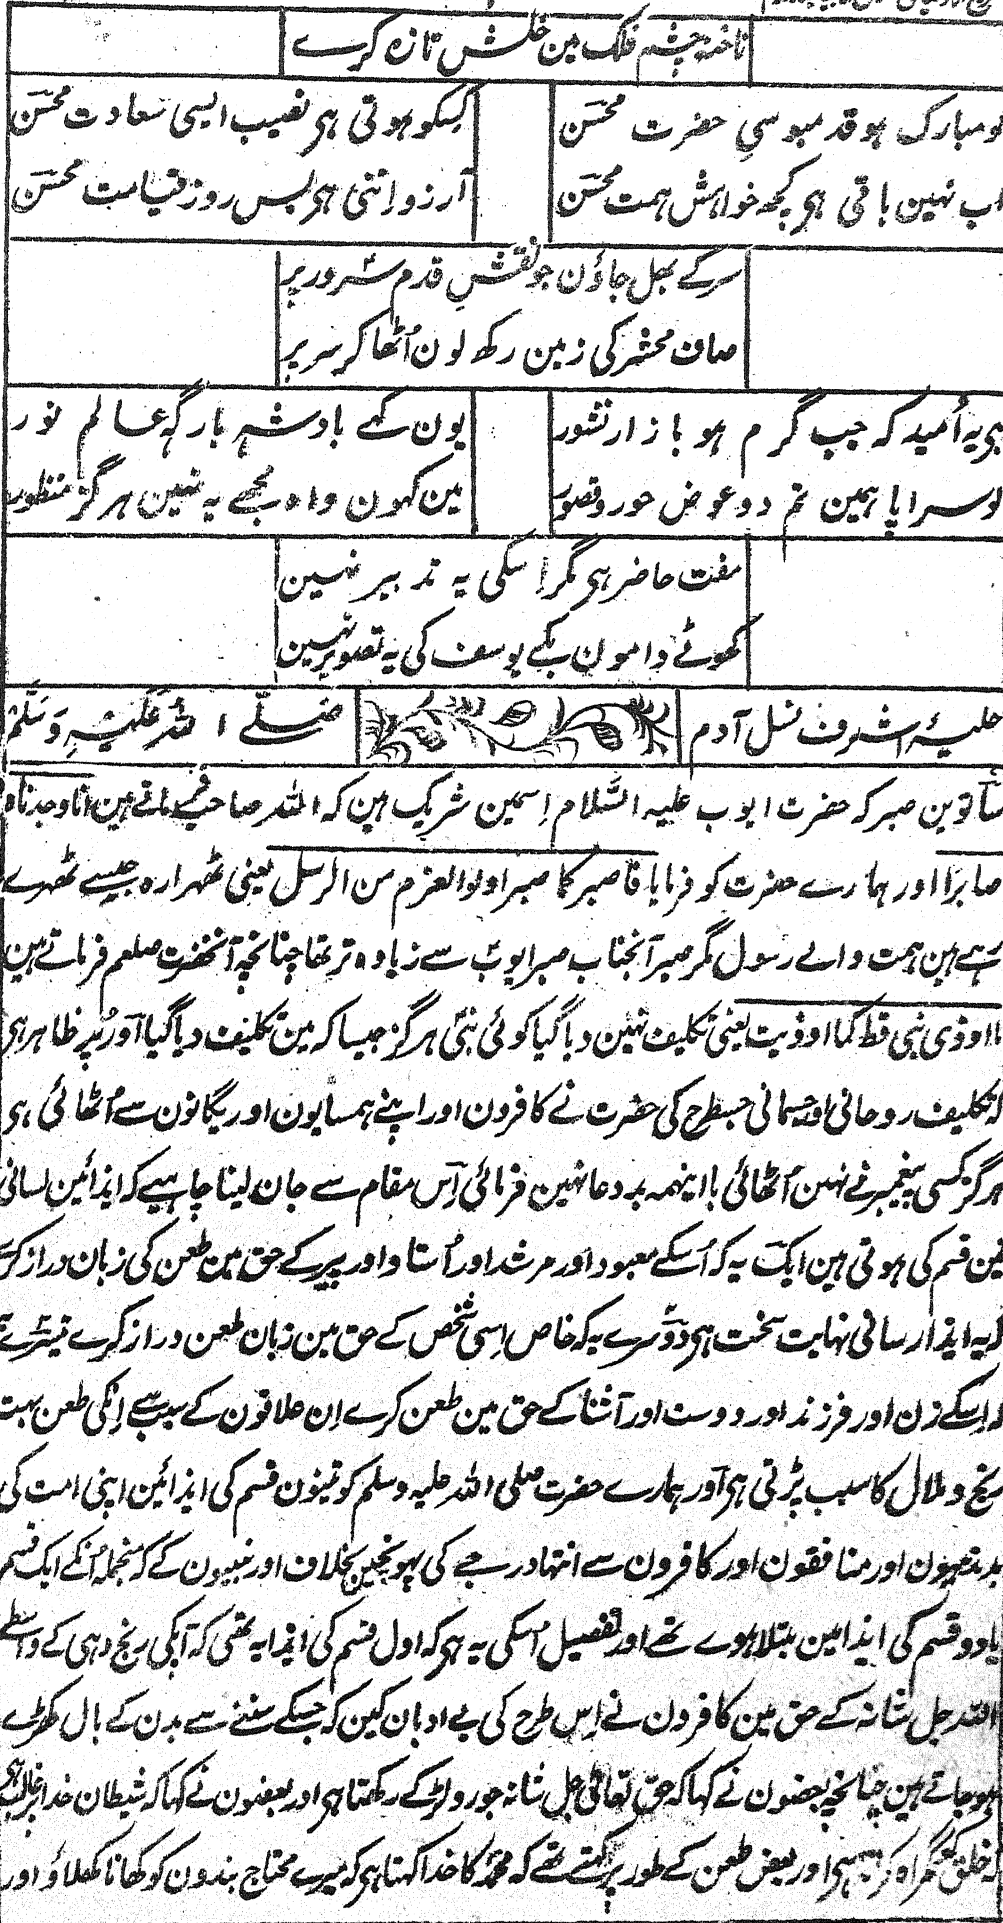 ناخنہ چشم فلک مین خلش تازہ کرے
لو مبارک ہو قدمبوسیِ حضرت محسنؔ
کسکو ہوتی ہی نصیب ایسی سعادت محسنؔ
اب نہین باقی ہی کچھ خواہش ہمت محسنؔ
آرزو اتنی ہی بس روز قیامت محسنؔ
سرکے بھل جاؤن جو نقشِ قدم سرور پر
صاف محشر کی زمین رکھ لون اُٹھا کر سر پر
ہی یہ اُمید کہ جب گرم ہو بازار نشور
یون کہے بادشہِ بارگہِ عالم نور
لو سراپا ہمین تم دو عوض حور و قصور
مین کہون واہ مجھے یہ نہین ہرگز منظور
مفت حاضر ہی مگر اِسکی یہ تدبیر نہین
کھوٹے دامون بکے یوسف کی یہ تصویر نہین
حلیۂ اشرف نسل آدم
صَلّے اللہُ عَلَیْہِ وَسَلَّم
ساتوین صبر کہ حضرت ایوب علیہ السَّلام اِسمین شریک ہین کہ اللہ صاحب فرماتے ہین انا وجدناہ
صابرًا اور ہمارے حضرت کو فرمایا فاصبر کما صبر اولوالعزم من الرسل یعنی ٹھہرارہ جیسے ٹھہرے
رہے ہین ہمت والے رسول مگر صبر آنجناب صبر ایوبؑ سے زیادہ تر تھا چنانچہ آنحضرت صلعم فرماتے ہین
ما اوذی نبی قط کما اوذیت یعنی تکلیف نہین دیا گیا کوئی نبی ہرگز جیسا کہ مین تکلیف دیا گیا اور پر ظاہر ہی
کہ تکلیف روحانی اور جسمانی جسطرح کی حضرت نے کافرون اور اپنے ہمسایون اور یگانون سے اُٹھائی ہی
ہرگز کسی پیغمبر نے نہین اُٹھائی بااینہمہ بد دعا نہین فرمائی اس مقام سے جان لینا چاہیے کہ ایذائین لسانی
تین قسم کی ہوتی ہین ایک یہ کہ اُسکے معبود اور مرشد اور اُستاد اور پیر کے حق مین طعن کی زبان دراز کرے
اور یہ ایذا رسانی نہایت سخت ہی دوسرے یہ کہ خاص اِسی شخص کے حق مین زبان طعن دراز کرے تیسرے یہ
کہ اِسکے زن اور فرزند اور دوست اور آشنا کے حق مین طعن کرے اِن علاقون کے سبب سے اِنکی طعن بہت
رنج و ملال کا سبب پڑتی ہی اور ہمارے حضرت صلی اللہ علیہ وسلم کو تینون قسم کی ایذائین اپنی امت کی
بد مذہبون اور منافقون اور کافرون سے انتہا درجے کی پہونچین بخلاف اور نبیون کے کہ منجملہ اُنکے ایک قسم
یا دو قسم کی ایذا مین مبتلا ہوے تھے اور تفصیل اُسکی یہ ہی کہ اول قسم کی ایذا یہ تھی کہ آپکی رنج دہی کے واسطے
اللہ جل شانہ کے حق مین کافرون نے اِس طرح کی بے ادبیان کین کہ جسکے سننے سے بدن کے بال کھڑے
ہو جاتے ہین چنانچہ بعضون نے کہا کہ حق تعالیٰ جل شانہ جورو لڑکے رکھتا ہی اور بعضون نے کہا کہ شیطان خدا پر غالب ہی
کہ خلق کو گمراہ کرتا ہی اور بعض طعن کے طور پر کہتے تھے کہ محمدؐ کا خدا کہتا ہی کہ میرے محتاج بندون کو کھانا کھلاؤ اور